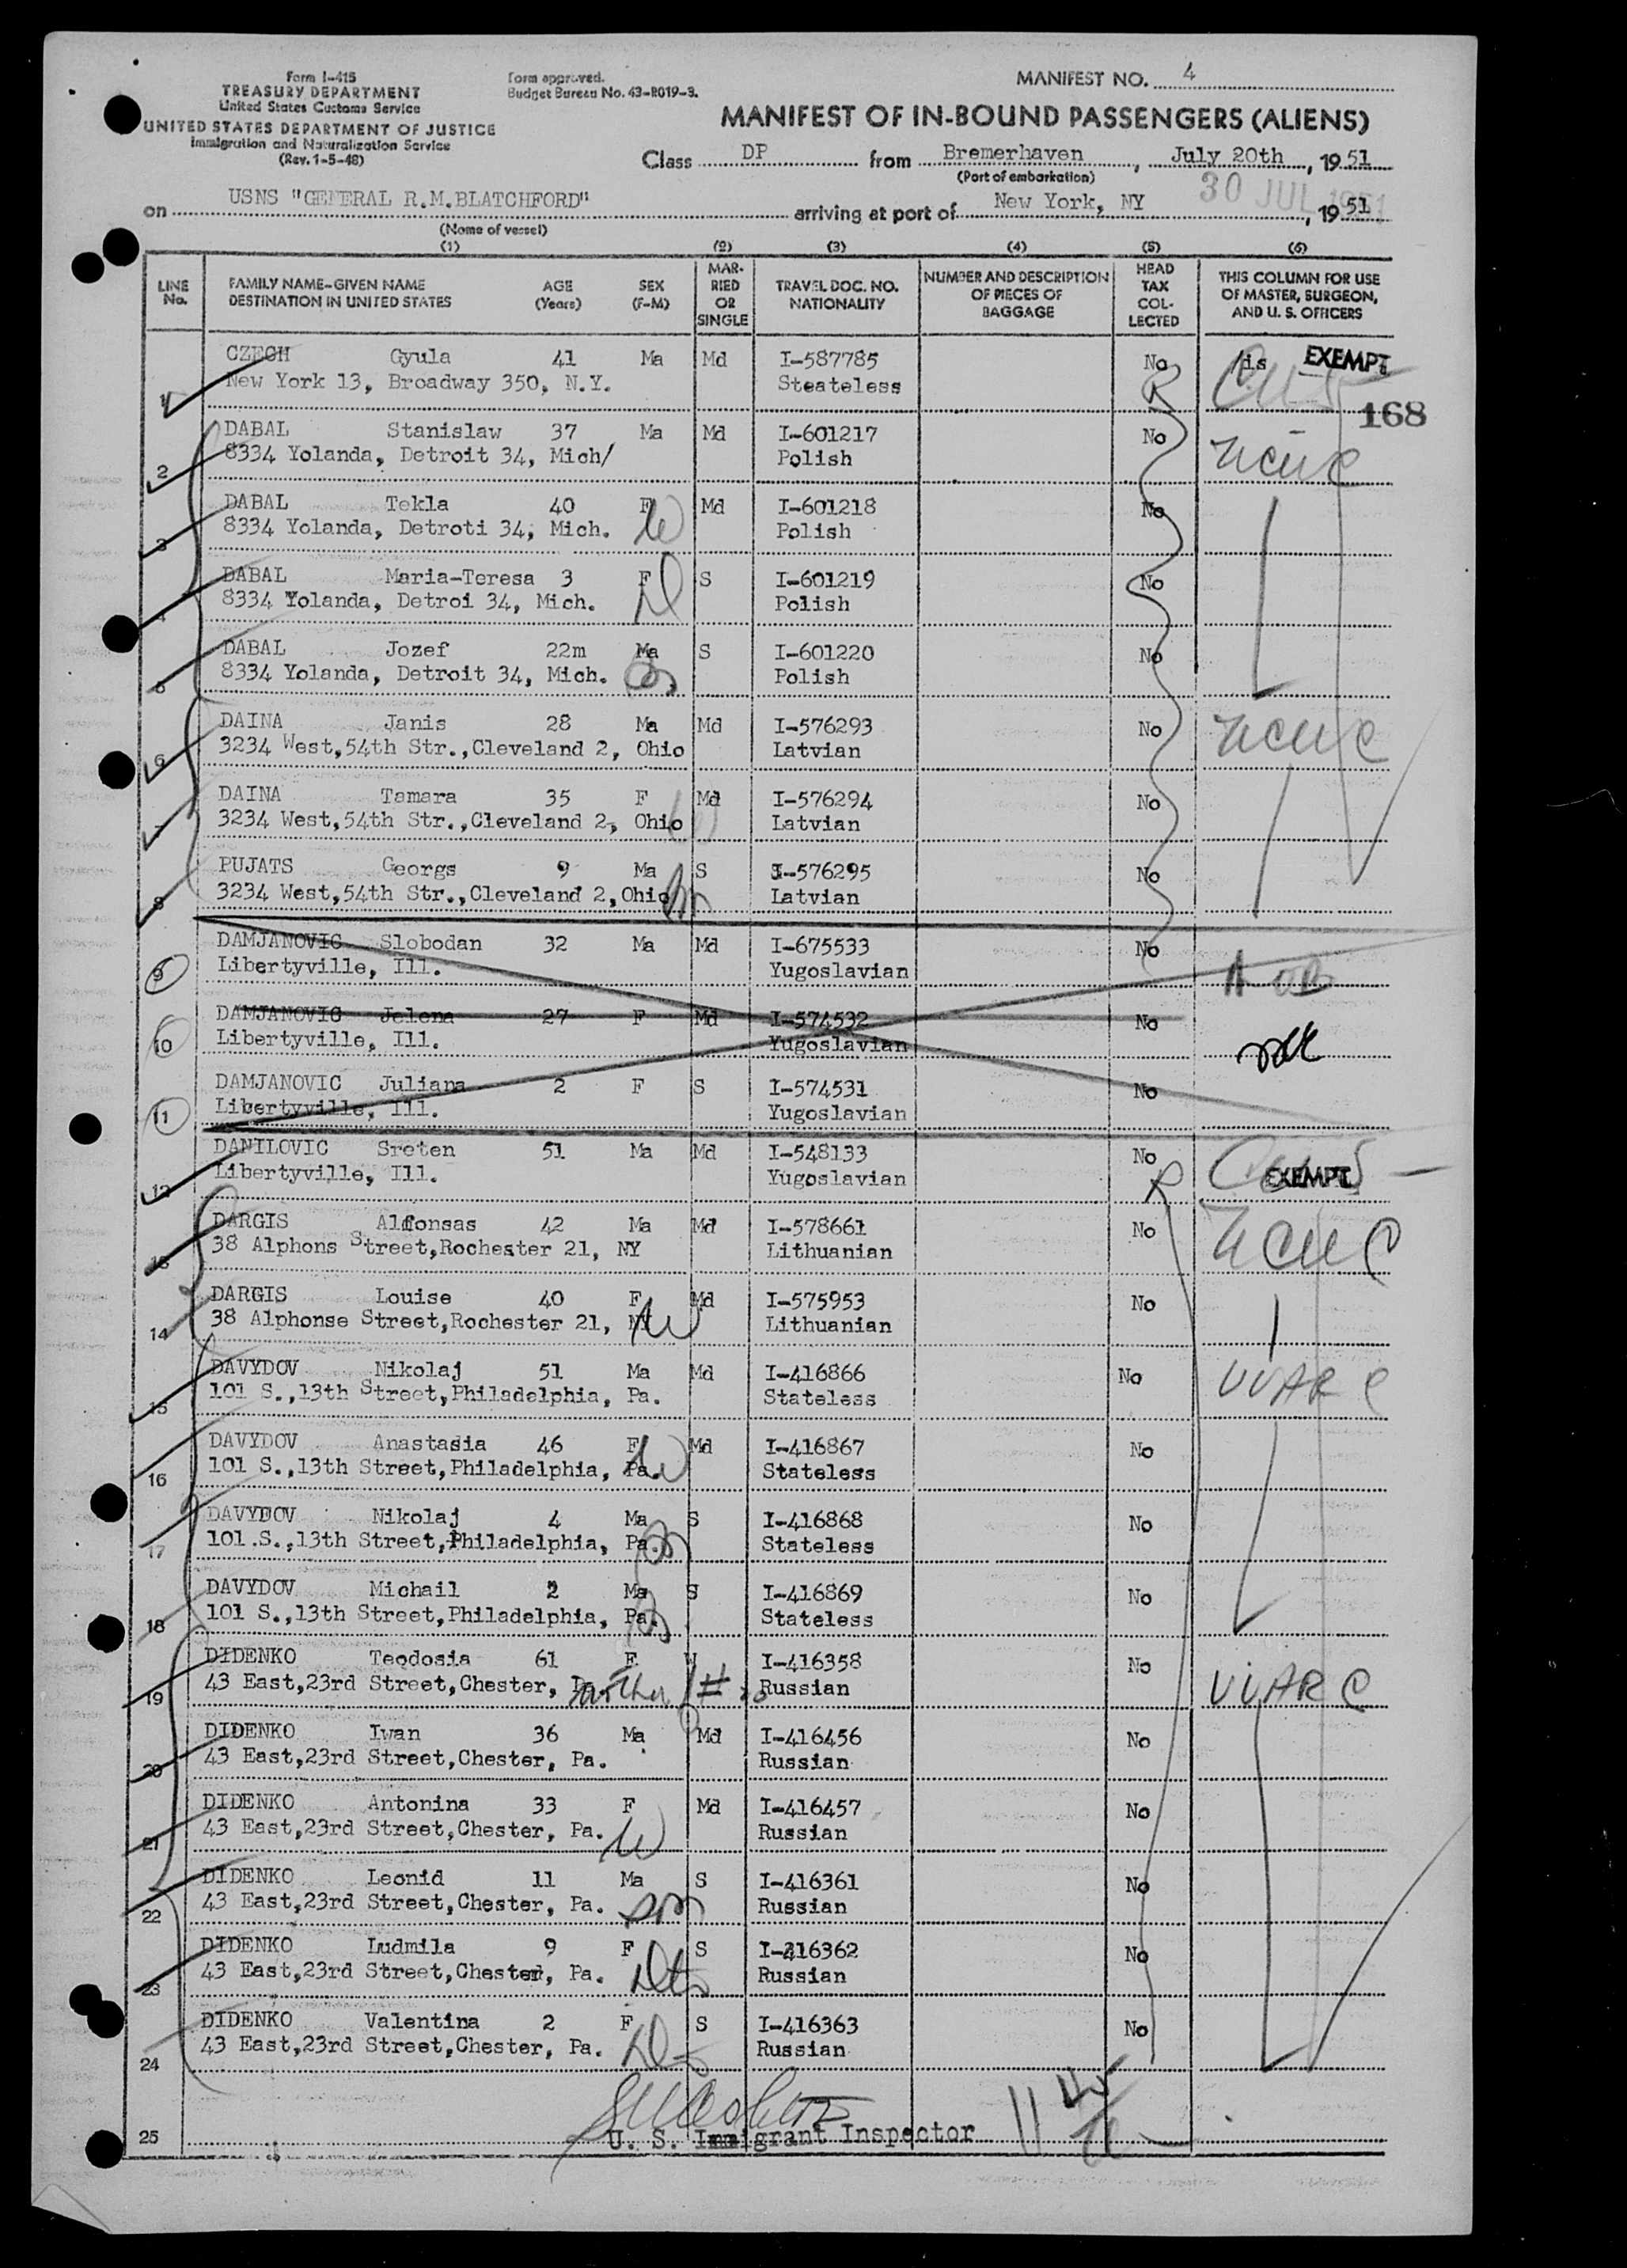 Form I-415
TREASURY DEPARTMENT
United States Customs Service
UNITED STATES DEPARTMENT OF JUSTICE
Immigration and Naturalization Service
(Rev. 1-5-48)
Form approved.
Budget Bureau No. 43-R019-3.
MANIFEST NO. 4
MANIFEST OF IN-BOUND PASSENGERS (ALIENS)
Class DP from Bremerhaven, July 20th, 1951
(Port of embarkation)
on USNS "GENERAL R.M.BLATCHFORD" arriving at port of New York, NY 30 JUL 1951, 1951
(Name of vessel)
(1) (2) (3) (4) (5) (6)
LINE No. FAMILY NAME-GIVEN NAME DESTINATION IN UNITED STATES AGE (Years) SEX (F-M) MARRIED OR SINGLE TRAVEL DOC. NO. NATIONALITY NUMBER AND DESCRIPTION OF PIECES OF BAGGAGE HEAD TAX COLLECTED THIS COLUMN FOR USE OF MASTER, SURGEON, AND U. S. OFFICERS
1 CZECH Gyula 41 Ma Md I-587785 No EXEMPT
New York 13, Broadway 350, N.Y. Steateless R
168
2 DABAL Stanislaw 37 Ma Md I-601217 No
8334 Yolanda, Detroit 34, Mich/ Polish NCWC
3 DABAL Tekla 40 F Md I-601218 No
8334 Yolanda, Detroti 34, Mich. W Polish
4 DABAL Maria-Teresa 3 F S I-601219 No
8334 Yolanda, Detroi 34, Mich. D Polish
5 DABAL Jozef 22m Ma S I-601220 No
8334 Yolanda, Detroit 34, Mich. Polish
6 DAINA Janis 28 Ma Md I-576293 No NCWC
3234 West,54th Str.,Cleveland 2, Ohio Latvian
7 DAINA Tamara 35 F Md I-576294 No
3234 West,54th Str.,Cleveland 2, Ohio Latvian
8 PUJATS Georgs 9 Ma S I-576295 No
3234 West,54th Str.,Cleveland 2,Ohio Latvian
9 DAMJANOVIC Slobodan 32 Ma Md I-675533 No
Libertyville, Ill. Yugoslavian
10 DAMJANOVIC Jelena 27 F Md I-574532 No
Libertyville, Ill. Yugoslavian
11 DAMJANOVIC Juliana 2 F S I-574531 No
Libertyville, Ill. Yugoslavian
12 DANILOVIC Sreten 51 Ma Md I-548133 No
Libertyville, Ill. Yugoslavian R EXEMPT
13 DARGIS Alfonsas 42 Ma Md I-578661 No NCWC
38 Alphons Street,Rochester 21, NY Lithuanian
14 DARGIS Louise 40 F Md I-575953 No
38 Alphonse Street,Rochester 21, NY W Lithuanian
15 DAVYDOV Nikolaj 51 Ma Md I-416866 No
101 S.,13th Street,Philadelphia, Pa. Stateless WARC
16 DAVYDOV Anastasia 46 F Md I-416867 No
101 S.,13th Street,Philadelphia, Pa. W Stateless
17 DAVYDOV Nikolaj 4 Ma S I-416868 No
101.S.,13th Street,Philadelphia, Pa. Stateless
18 DAVYDOV Michail 2 Ma S I-416869 No
101 S.,13th Street,Philadelphia, Pa. Stateless
19 DIDENKO Teodosia 61 F W I-416358 No
43 East,23rd Street,Chester, Pa. Mother # 20 Russian WARC
20 DIDENKO Iwan 36 Ma Md I-416456 No
43 East,23rd Street,Chester, Pa. Russian
21 DIDENKO Antonina 33 F Md I-416457 No
43 East,23rd Street,Chester, Pa. W Russian
22 DIDENKO Leonid 11 Ma S I-416361 No
43 East,23rd Street,Chester, Pa. son Russian
23 DIDENKO Ludmila 9 F S I-216362 No
43 East,23rd Street,Chester, Pa. Russian
24 DIDENKO Valentina 2 F S I-416363 No
43 East,23rd Street,Chester, Pa. Russian
25 U. S. Immigrant Inspector